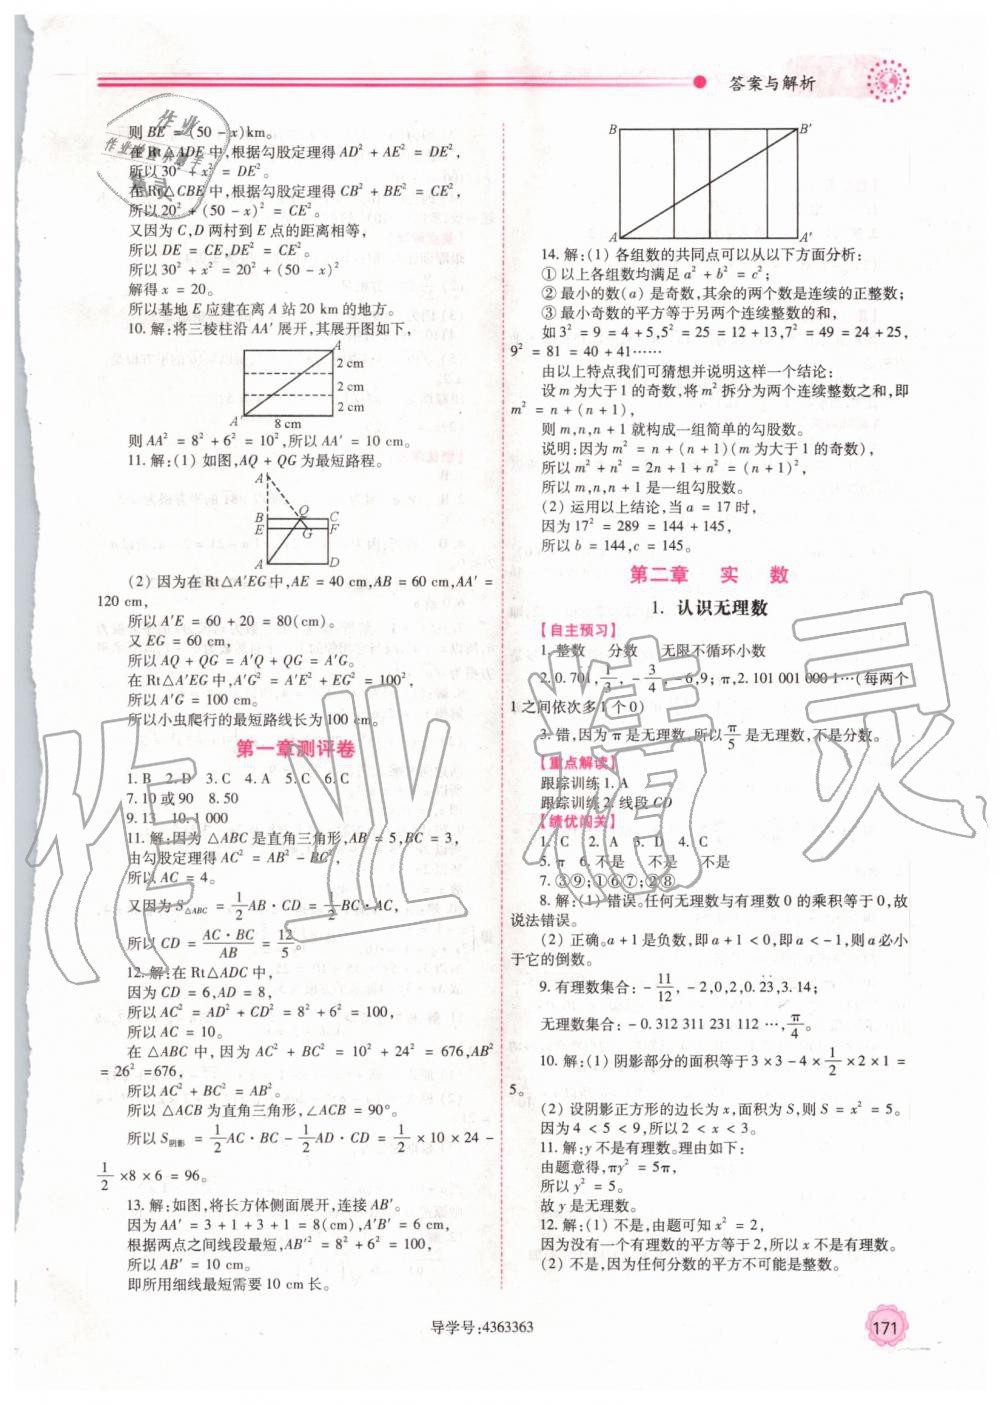 答案与解析
则 BE = (50 - x)km。
在 Rt△ADE 中,根据勾股定理得 AD² + AE² = DE²,
所以 30² + x² = DE²。
在 Rt△CBE 中,根据勾股定理得 CB² + BE² = CE²,
所以 20² + (50 - x)² = CE²。
又因为 C,D 两村到 E 点的距离相等,
所以 DE = CE,DE² = CE²。
所以 30² + x² = 20² + (50 - x)²
解得 x = 20。
所以基地 E 应建在离 A 站 20 km 的地方。
10. 解:将三棱柱沿 AA′ 展开,其展开图如下,
A
2 cm
2 cm
2 cm
A′
8 cm
则 AA² = 8² + 6² = 10²,所以 AA′ = 10 cm。
11. 解:(1) 如图,AQ + QG 为最短路程。
A
B Q C
E G F
A D
(2) 因为在 Rt△A′EG 中,AE = 40 cm,AB = 60 cm,AA′ =
120 cm,
所以 A′E = 60 + 20 = 80(cm)。
又 EG = 60 cm,
所以 AQ + QG = A′Q + QG = A′G。
在 Rt△A′EG 中,A′G² = A′E² + EG² = 100²,
所以 A′G = 100 cm。
所以小虫爬行的最短路线长为 100 cm。
第一章测评卷
1. B 2. D 3. C 4. A 5. C 6. C
7. 10 或 90 8. 50
9. 13 10. 1 000
11. 解:因为 △ABC 是直角三角形,AB = 5,BC = 3,
由勾股定理得 AC² = AB² - BC²,
所以 AC = 4。
又因为 S△ABC = 1/2 AB · CD = 1/2 BC · AC,
所以 CD = AC · BC / AB = 12/5。
12. 解:在 Rt△ADC 中,
因为 CD = 6,AD = 8,
所以 AC² = AD² + CD² = 8² + 6² = 100,
所以 AC = 10。
在 △ABC 中,因为 AC² + BC² = 10² + 24² = 676,AB²
= 26² = 676,
所以 AC² + BC² = AB²。
所以 △ACB 为直角三角形,∠ACB = 90°。
所以 S阴影 = 1/2 AC · BC - 1/2 AD · CD = 1/2 × 10 × 24 -
1/2 × 8 × 6 = 96。
13. 解:如图,将长方体侧面展开,连接 AB′。
因为 AA′ = 3 + 1 + 3 + 1 = 8(cm),A′B′ = 6 cm,
根据两点之间线段最短,AB′² = 8² + 6² = 100,
所以 AB′ = 10 cm。
即所用细线最短需要 10 cm 长。
B B′
A A′
14. 解:(1) 各组数的共同点可以从以下方面分析:
① 以上各组数均满足 a² + b² = c²;
② 最小的数(a) 是奇数,其余的两个数是连续的正整数;
③ 最小奇数的平方等于另两个连续整数的和,
如 3² = 9 = 4 + 5,5² = 25 = 12 + 13,7² = 49 = 24 + 25,
9² = 81 = 40 + 41……
由以上特点我们可猜想并说明这样一个结论:
设 m 为大于 1 的奇数,将 m² 拆分为两个连续整数之和,即
m² = n + (n + 1),
则 m,n,n + 1 就构成一组简单的勾股数。
说明:因为 m² = n + (n + 1)(m 为大于 1 的奇数),
所以 m² + n² = 2n + 1 + n² = (n + 1)²,
所以 m,n,n + 1 是一组勾股数。
(2) 运用以上结论,当 a = 17 时,
因为 17² = 289 = 144 + 145,
所以 b = 144,c = 145。
第二章 实 数
1. 认识无理数
【自主预习】
1. 整数 分数 无限不循环小数
2. 0.701,1/3,-3/4,-6,9; π,2.101 001 000 1…(每两个
1 之间依次多 1 个 0)
3. 错,因为 π 是无理数,所以 π/5 是无理数,不是分数。
【重点解读】
跟踪训练 1. A
跟踪训练 2. 线段 CD
【绩优闯关】
1. C 2. A 3. D 4. C
5. π 6. 不是 不是 不是
7. ③⑨;①⑥⑦;②⑧
8. 解:(1) 错误。任何无理数与有理数 0 的乘积等于 0,故
说法错误。
(2) 正确。a + 1 是负数,即 a + 1 < 0,即 a < - 1,则 a 必小
于它的倒数。
9. 有理数集合: -11/12, -2,0,2,0.2̇3̇,3.14;
无理数集合: -0.312 311 231 112 …,π/4。
10. 解:(1) 阴影部分的面积等于 3 × 3 - 4 × 1/2 × 2 × 1 =
5。
(2) 设阴影正方形的边长为 x,面积为 S,则 S = x² = 5。
因为 4 < 5 < 9,所以 2 < x < 3。
11. 解:y 不是有理数。理由如下:
由题意得,πy² = 5π,
所以 y² = 5。
故 y 是无理数。
12. 解:(1) 不是,由题可知 x² = 2,
因为没有一个有理数的平方等于 2,所以 x 不是有理数。
(2) 不是,因为任何分数的平方不可能是整数。
导学号:4363363
171
作业精灵